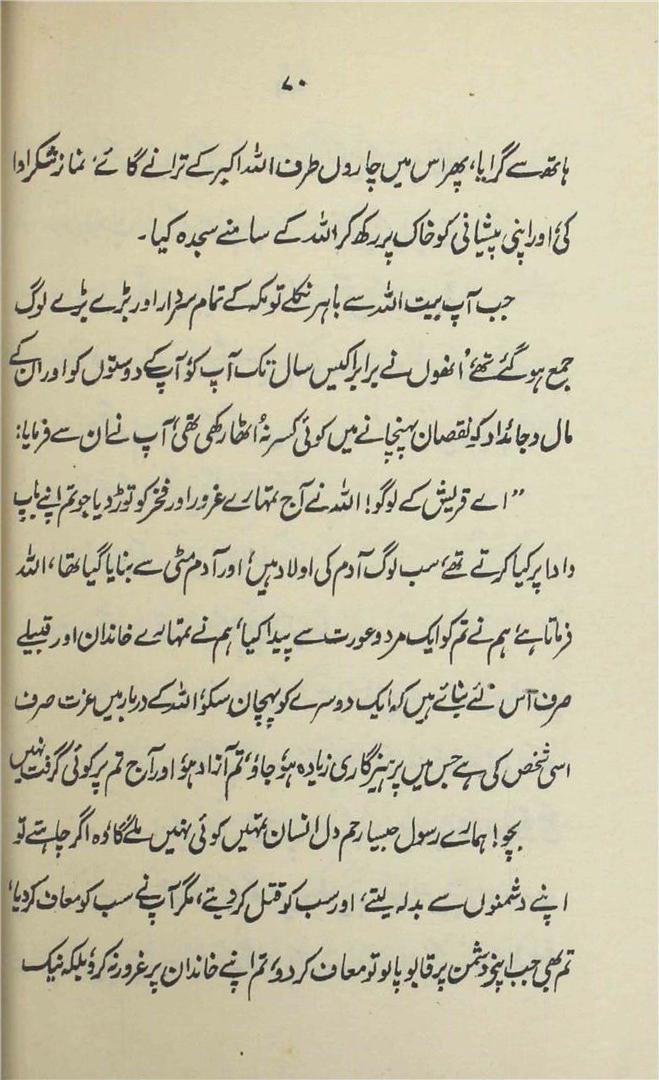 ۷۰
ہاتھ سے گرایا، پھر اس میں چاروں طرف اللہ اکبر کے ترانے گائے، نماز شکر ادا
کی، اور اپنی پیشانی کو خاک پر رکھ کر اللہ کے سامنے سجدہ کیا۔
جب آپ بیت اللہ سے باہر نکلے تو مکہ کے تمام سردار اور بڑے بڑے لوگ
جمع ہو گئے تھے، انھوں نے برابر اکیس سال تک آپ کو، آپ کے دوستوں کو اور ان کے
مال و جائداد کو نقصان پہنچانے میں کوئی کسر نہ اٹھا رکھی تھی، آپ نے ان سے فرمایا:
”اے قریش کے لوگو! اللہ نے آج تمہارے غرور اور فخر کو توڑ دیا جو تم اپنے باپ
دادا پر کیا کرتے تھے، سب لوگ آدم کی اولاد ہیں، اور آدم مٹی سے بنایا گیا تھا، اللہ
فرماتا ہے، ہم نے تم کو ایک مرد و عورت سے پیدا کیا، ہم نے تمہارے خاندان اور قبیلے
صرف اس لئے بنائے ہیں کہ ایک دوسرے کو پہچان سکو، اللہ کے دربار میں عزت صرف
اسی شخص کی ہے جس میں پرہیزگاری زیادہ ہو، جاؤ، تم آزاد ہو، اور آج تم پر کوئی گرفت نہیں
بچو! ہمارے رسول جیسا رحم دل انسان تمہیں کوئی نہیں ملے گا، وہ اگر چاہتے تو
اپنے دشمنوں سے بدلہ لیتے، اور سب کو قتل کر دیتے، مگر آپ نے سب کو معاف کر دیا،
تم بھی جب اپنے دشمن پر قابو پا لو تو معاف کر دو، تم اپنے خاندان پر غرور نہ کرو، بلکہ نیک